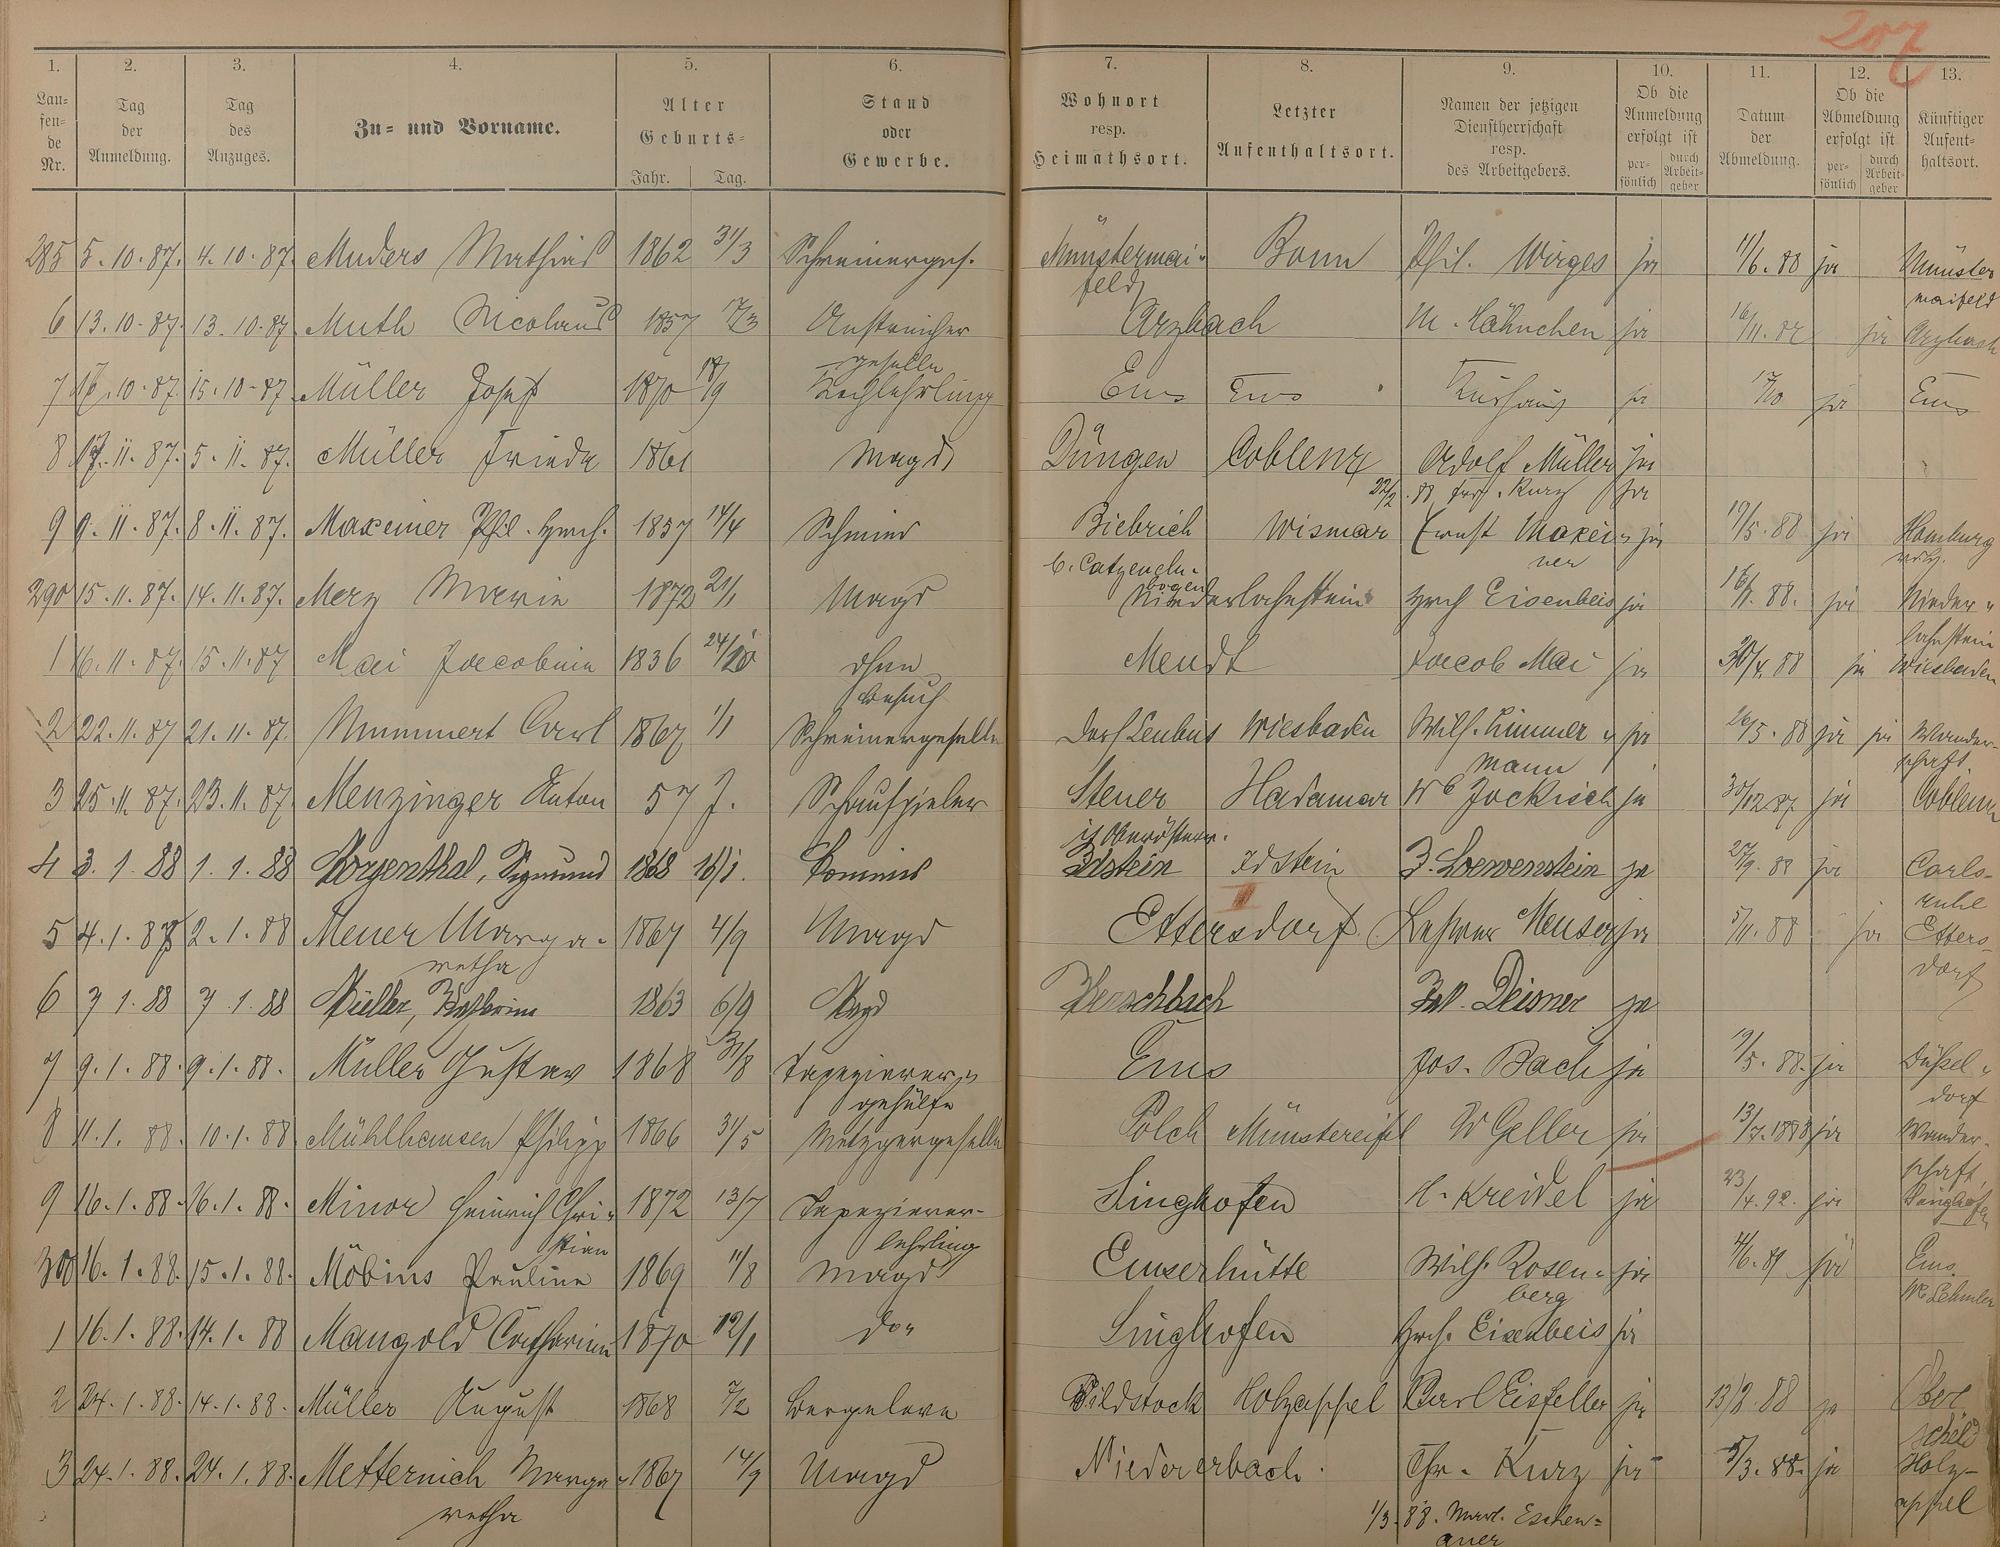 207
1. 2. 3. 4. 5. 6. 7. 8. 9. 10. 11. 12. 13.
Lau=fen=de Nr. Tag der Anmeldung. Tag des Anzuges. Zu= und Vorname. Alter Geburts= Jahr. Tag. Stand oder Gewerbe. Wohnort resp. Heimathsort. Letzter Aufenthaltsort. Namen der jetzigen Dienstherrschaft resp. des Arbeitgebers. Ob die Anmeldung erfolgt ist per=sönlich durch Arbeit=geber Datum der Abmeldung. Ob die Abmeldung erfolgt ist per=sönlich durch Arbeit=geber Künftiger Aufent=haltsort.
285 5.10.87. 4.10.87. Muders Mathias 1862 31/3 Schreinerges. Münstermai- Bonn Phil. Wirges ja 11/6.88 ja Münster
feld maifeld
6 13.10.87. 13.10.87 Muth Nicolaus 1857 17/3 Anstreicher Arzbach M. Hähnchen ja 16/11.87 ja Arzbach
geselle
7 16.10.87. 15.10.87. Müller Josef 1870 18/9 Kochlehrling Ems Ems Kurhaus ja 17/10 ja Ems
8 17.11.87. 5.11.87. Müller Frieda 1861 Magd Düngen Coblenz Adolf Müller ja
22/2.88 Kurz ja
9 9.11.87. 8.11.87. Maxeiner Phil. Hrch. 1857 14/4 Schmied Biebrich Wismar Ernst Maxei- ja 19/5.88 ja Homburg
b. Catzeneln- ner
bogen
290 15.11.87. 14.11.87. Merz Marie 1872 21/1 Magd Niederlahnstein Hrch Eisenbeis ja 16/1.88. ja Nieder-
lahnstein
1 16.11.87. 15.11.87 Mai Jacobine 1836 24/10 ohne Mendt Jacob Mai ja 30/4.88 ja Wiesbaden
Besuch
2 22.11.87 21.11.87. Mummert Carl 1867 1/1 Schreinergeselle Dorf Leubus Wiesbaden Wilh. Zimmer- ja 26/5.88 ja ja Wander-
mann schaft
3 25.11.87. 23.11.87 Menzinger Anton 57 J. Schauspieler Steyer Hadamar We Jockisch ja 30/12.87 ja Coblenz
i/ Oberösterr.
4 3.1.88 1.1.88 Morgenthal, Sigmund 1868 16/1. Commis Idstein Idstein J. Loewenstein ja 27/9.88 ja Carls-
ruhe
5 4.1.87 2.1.88 Meuer Marga- 1867 4/9 Magd Ettersdorf Lehrer Meuser ja 5/11.88 ja Etters-
retha dorf
6 7 1.88 7.1.88 Müller, Katharina 1863 6/9 Magd Herschbach Deisner ja
7 9.1.88. 9.1.88. Müller Gustav 1868 31/8 Tapezierer- Ems Jos. Bach ja 19/5.88. ja Düßel-
gehülfe dorf
8 11.1.88. 10.1.88 Mühlhausen Philipp 1866 31/5 Metzgergeselle Polch Münstereifel W Geller ja 13/7.1888 ja Wander-
schaft
9 16.1.88. 16.1.88. Minor Heinrich Chri- 1872 13/7 Tapezierer- Singhofen H. Kreidel ja 23/4.92. ja Singhofen
stian lehrling
300 16.1.88. 15.1.88. Möbius Pauline 1869 11/8 Magd Emserhütte Wilh. Rosen- ja 4/6.89 ja Ems.
berg We Lehmler
1 16.1.88. 14.1.88 Mangold Catharina 1870 12/1 do. Singhofen Hrch. Eisenbeis ja
2 24.1.88. 14.1.88. Müller August 1868 7/2 Bergeleve Bildstock Holzappel Carl Eisfeller ja 13/8.88 ja Ober
scheld
3 24.1.88. 24.1.88. Metternich Marga- 1867 14/9 Magd Niedererbach. Chr. Kurz ja 5/3.88. ja Holz-
retha appel
1/3.88. Eschen=
auer